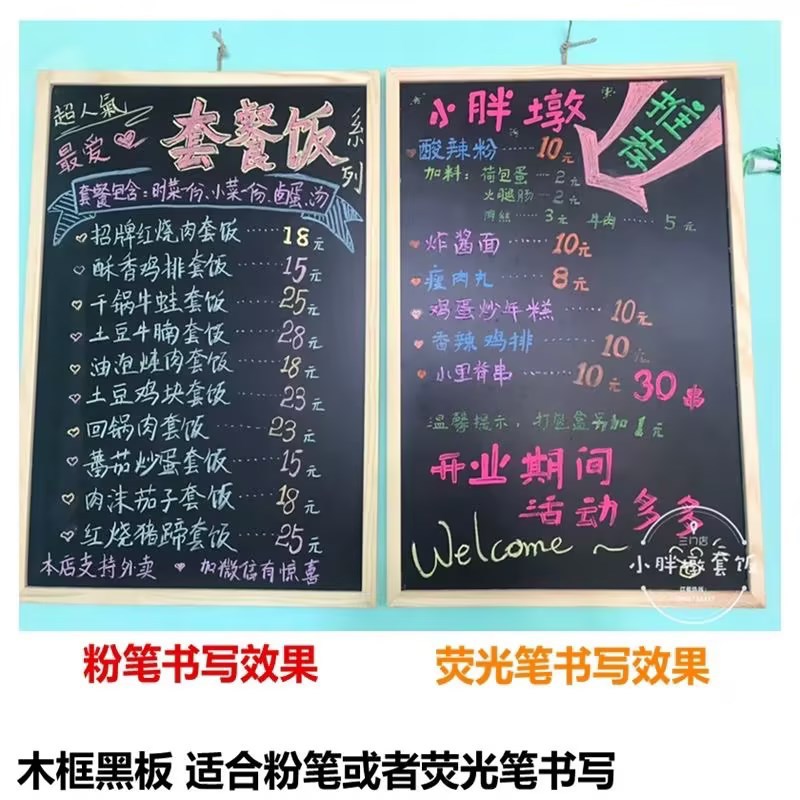 超人氣
最爱
套餐饭
系列
套餐包含:时菜一份、小菜一份、卤蛋、汤
招牌红烧肉套饭……18元
酥香鸡排套饭……15元
干锅牛蛙套饭……25元
土豆牛腩套饭……28元
油泡炖肉套饭……18元
土豆鸡块套饭……23元
回锅肉套饭……23元
蕃茄炒蛋套饭……15元
肉沫茄子套饭……18元
红烧猪蹄套饭……25元
本店支持外卖 加微信有惊喜
小胖墩
推荐
酸辣粉……10元
加料:荷包蛋……2元
火腿肠……2元
肉丝……3元 牛肉……5元
炸酱面……10元
瘦肉丸……8元
鸡蛋炒年糕……10元
香辣鸡排……10元
小里脊串……10元 30串
温馨提示,打包盒另加1元
开业期间
活动多多
Welcome ~
三门店
小胖墩套饭
粉笔书写效果
荧光笔书写效果
木框黑板 适合粉笔或者荧光笔书写